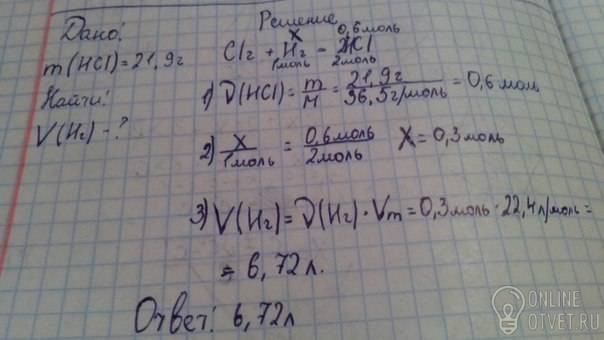 Дано:
m(HCl)=21,9г
Найти:
V(H2)-?
Решение
x 0,6моль
Cl2 + H2 = 2HCl
1моль 2моль
1) ν(HCl) = m/M = 21,9г/36,5г/моль = 0,6 мол
2) x/1моль = 0,6моль/2моль x=0,3моль
3) V(H2)=ν(H2)·Vm=0,3моль·22,4л/моль=
= 6,72л.
Ответ: 6,72л
ONLINE
OTVET.RU